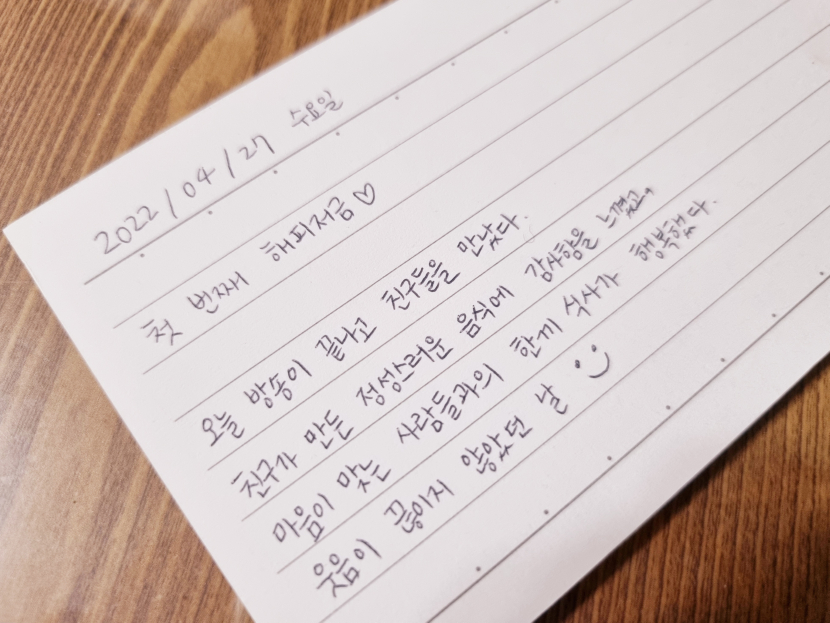 2022/04/27 수요일
첫 번째 해피저금♡
오늘 방송이 끝나고 친구들을 만났다.
친구가 만든 정성스러운 음식에 감사함을 느꼈고,
마음이 맞는 사람들과의 한끼 식사가 행복했다.
웃음이 끊이지 않았던 날 :)